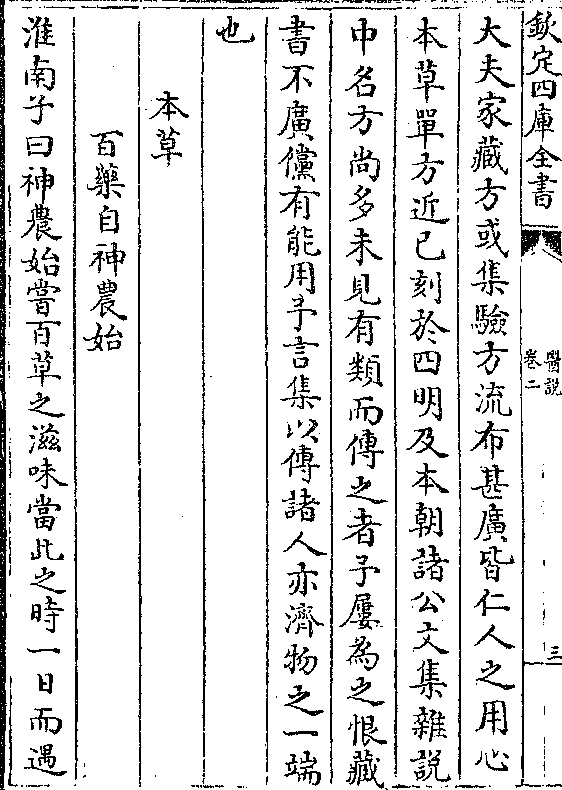 欽定四庫全書
醫説
卷二
三
大夫家藏方或集驗方流布甚廣皆仁人之用心
本草單方近已刻於四明及本朝諸公文集雜説
中名方尚多未見有類而傳之者予屢為之恨藏
書不廣儻有能用予言集以傳諸人亦濟物之一端
也
本草
百藥自神農始
淮南子曰神農始嘗百草之滋味當此之時一日而遇